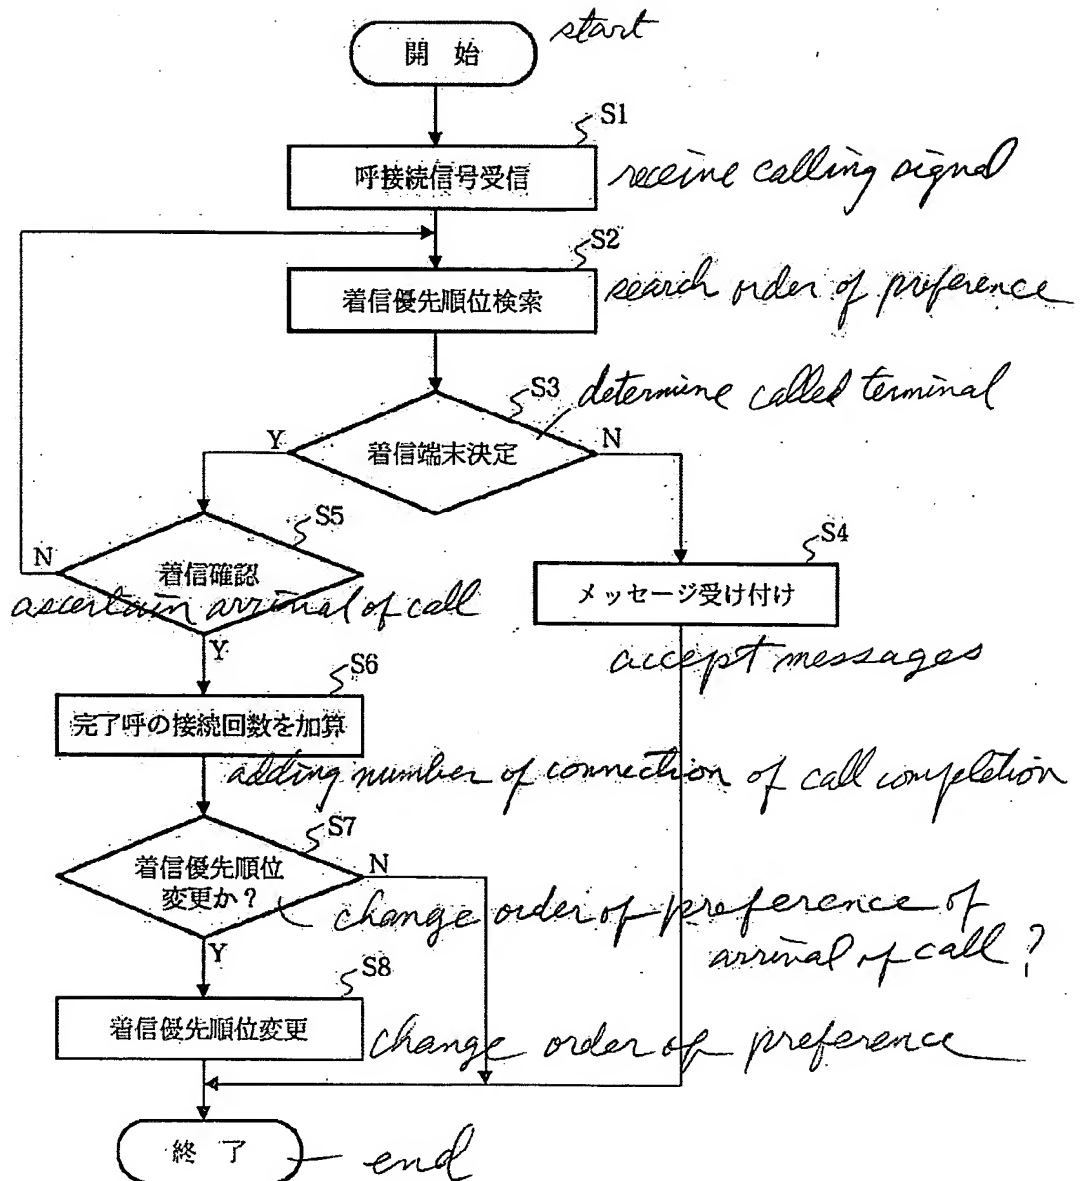 開 始
start
S1
呼接続信号受信
receive calling signal
S2
着信優先順位検索
search order of preference
S3
determine called terminal
Y
着信端末決定
N
S5
S4
N
着信確認
メッセージ受け付け
ascertain arrival of call
Y
accept messages
S6
完了呼の接続回数を加算
adding number of connection of call completion
S7
着信優先順位
変更か?
N
change order of preference of
arrival of call?
Y
S8
着信優先順位変更
change order of preference
終 了
end